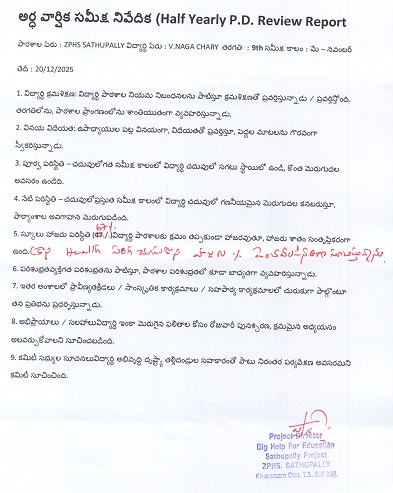 అర్ధ వార్షిక సమీక్ష నివేదిక (Half Yearly P.D. Review Report
పాఠశాల పేరు : ZPHS SATHUPALLY విద్యార్థి పేరు : V.NAGA CHARY తరగతి : 9th సమీక్ష కాలం : మే – నవంబర్
తేదీ : 20/12/2025
1. విద్యార్థి క్రమశిక్షణ: విద్యార్థి పాఠశాల నియమ నిబంధనలను పాటిస్తూ క్రమశిక్షణతో ప్రవర్తిస్తున్నాడు / ప్రవర్తిస్తోంది.
తరగతిలోను, పాఠశాల ప్రాంగణంలోను శాంతియుతంగా వ్యవహరిస్తున్నాడు.
2. వినయ విధేయత: ఉపాధ్యాయుల పట్ల వినయంగా, విధేయతతో ప్రవర్తిస్తూ, పెద్దల మాటలను గౌరవంగా
స్వీకరిస్తున్నాడు.
3. పూర్వ పరిస్థితి – చదువులోగత సమీక్ష కాలంలో విద్యార్థి చదువులో సగటు స్థాయిలో ఉండి, కొంత మెరుగుదల
అవసరం ఉండేది.
4. నేటి పరిస్థితి – చదువులోప్రస్తుత సమీక్ష కాలంలో విద్యార్థి చదువులో గణనీయమైన మెరుగుదల కనబరుస్తూ,
పాఠ్యాంశాల అవగాహన మెరుగుపడింది.
5. స్కూలు హాజరు పరిస్థితి విద్యార్థి పాఠశాలకు క్రమం తప్పకుండా హాజరవుతూ, హాజరు శాతం సంతృప్తికరంగా
ఉంది. Health
6. పరిశుభ్రతవ్యక్తిగత పరిశుభ్రతను పాటిస్తూ, పాఠశాల పరిశుభ్రతలో కూడా బాధ్యతగా వ్యవహరిస్తున్నాడు.
7. ఇతర అంశాలలో ప్రావీణ్యతక్రీడలు / సాంస్కృతిక కార్యక్రమాలు / సహపాఠ్య కార్యక్రమాలలో చురుకుగా పాల్గొంటూ
తన ప్రతిభను ప్రదర్శించాడు.
8. అభిప్రాయాలు / సలహాలువిద్యార్థి ఇంకా మెరుగైన ఫలితాల కోసం రోజువారీ పునశ్చరణ, క్రమమైన అధ్యయనం
అలవర్చుకోవాలని సూచించబడింది.
9. కమిటీ సభ్యుల సూచనలువిద్యార్థి అభివృద్ధి దృష్ట్యా, తల్లిదండ్రుల సహకారంతో పాటు నిరంతర పర్యవేక్షణ అవసరమని
కమిటీ సూచించింది.
Project Director
Big Help For Education
Sathupally Project
ZPHS. SATHUPALLY
Khammam Dist. T.S. 507 303.